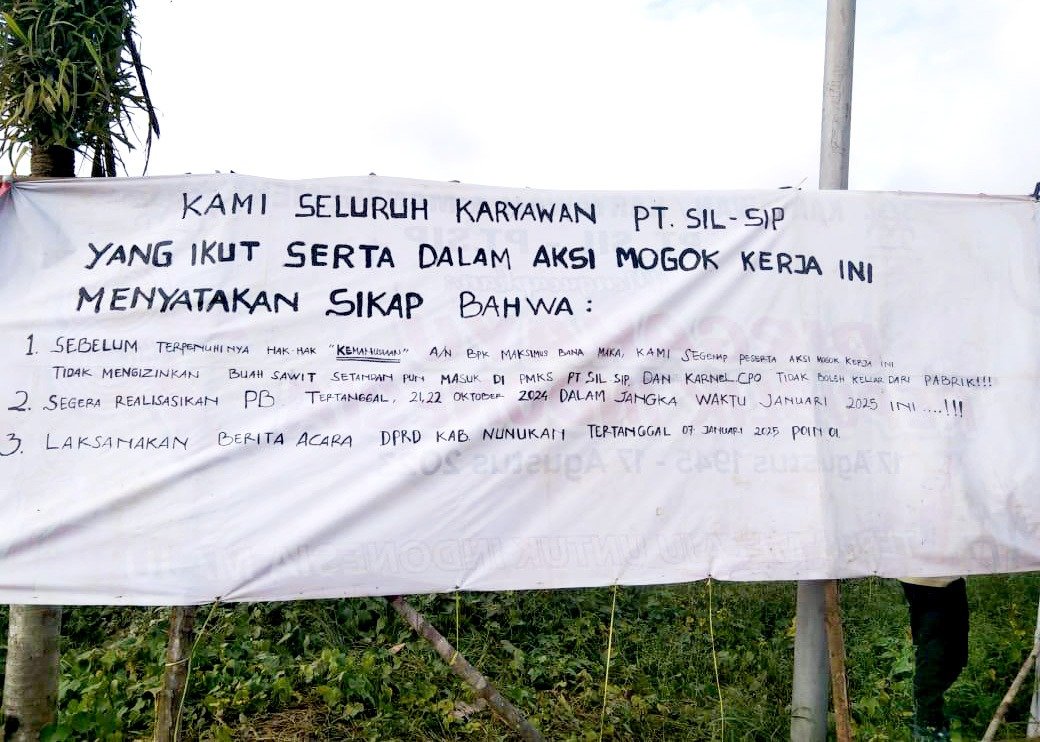 KAMI SELURUH KARYAWAN PT. SIL-SIP
YANG IKUT SERTA DALAM AKSI MOGOK KERJA INI
MENYATAKAN SIKAP BAHWA :
1. SEBELUM TERPENUHINYA HAK-HAK "KEMANUSIAAN" A/N BPK MAKSIMUS BANA MAKA, KAMI SEGENAP PESERTA AKSI MOGOK KERJA INI
TIDAK MENGIZINKAN BUAH SAWIT SETANDAN PUN MASUK DI PMKS PT. SIL SIP, DAN KARNEL.CPO TIDAK BOLEH KELUAR DARI PABRIK!!!
2. SEGERA REALISASIKAN PB TERTANGGAL, 21,22 OKTOBER 2024 DALAM JANGKA WAKTU JANUARI 2025 INI ....!!!
3. LAKSANAKAN BERITA ACARA DPRD KAB. NUNUKAN TERTANGGAL 07 JANUARI 2025 POIN 01
17 Agustus 1945 - 17 Agustus
UNTUK INDONESIA